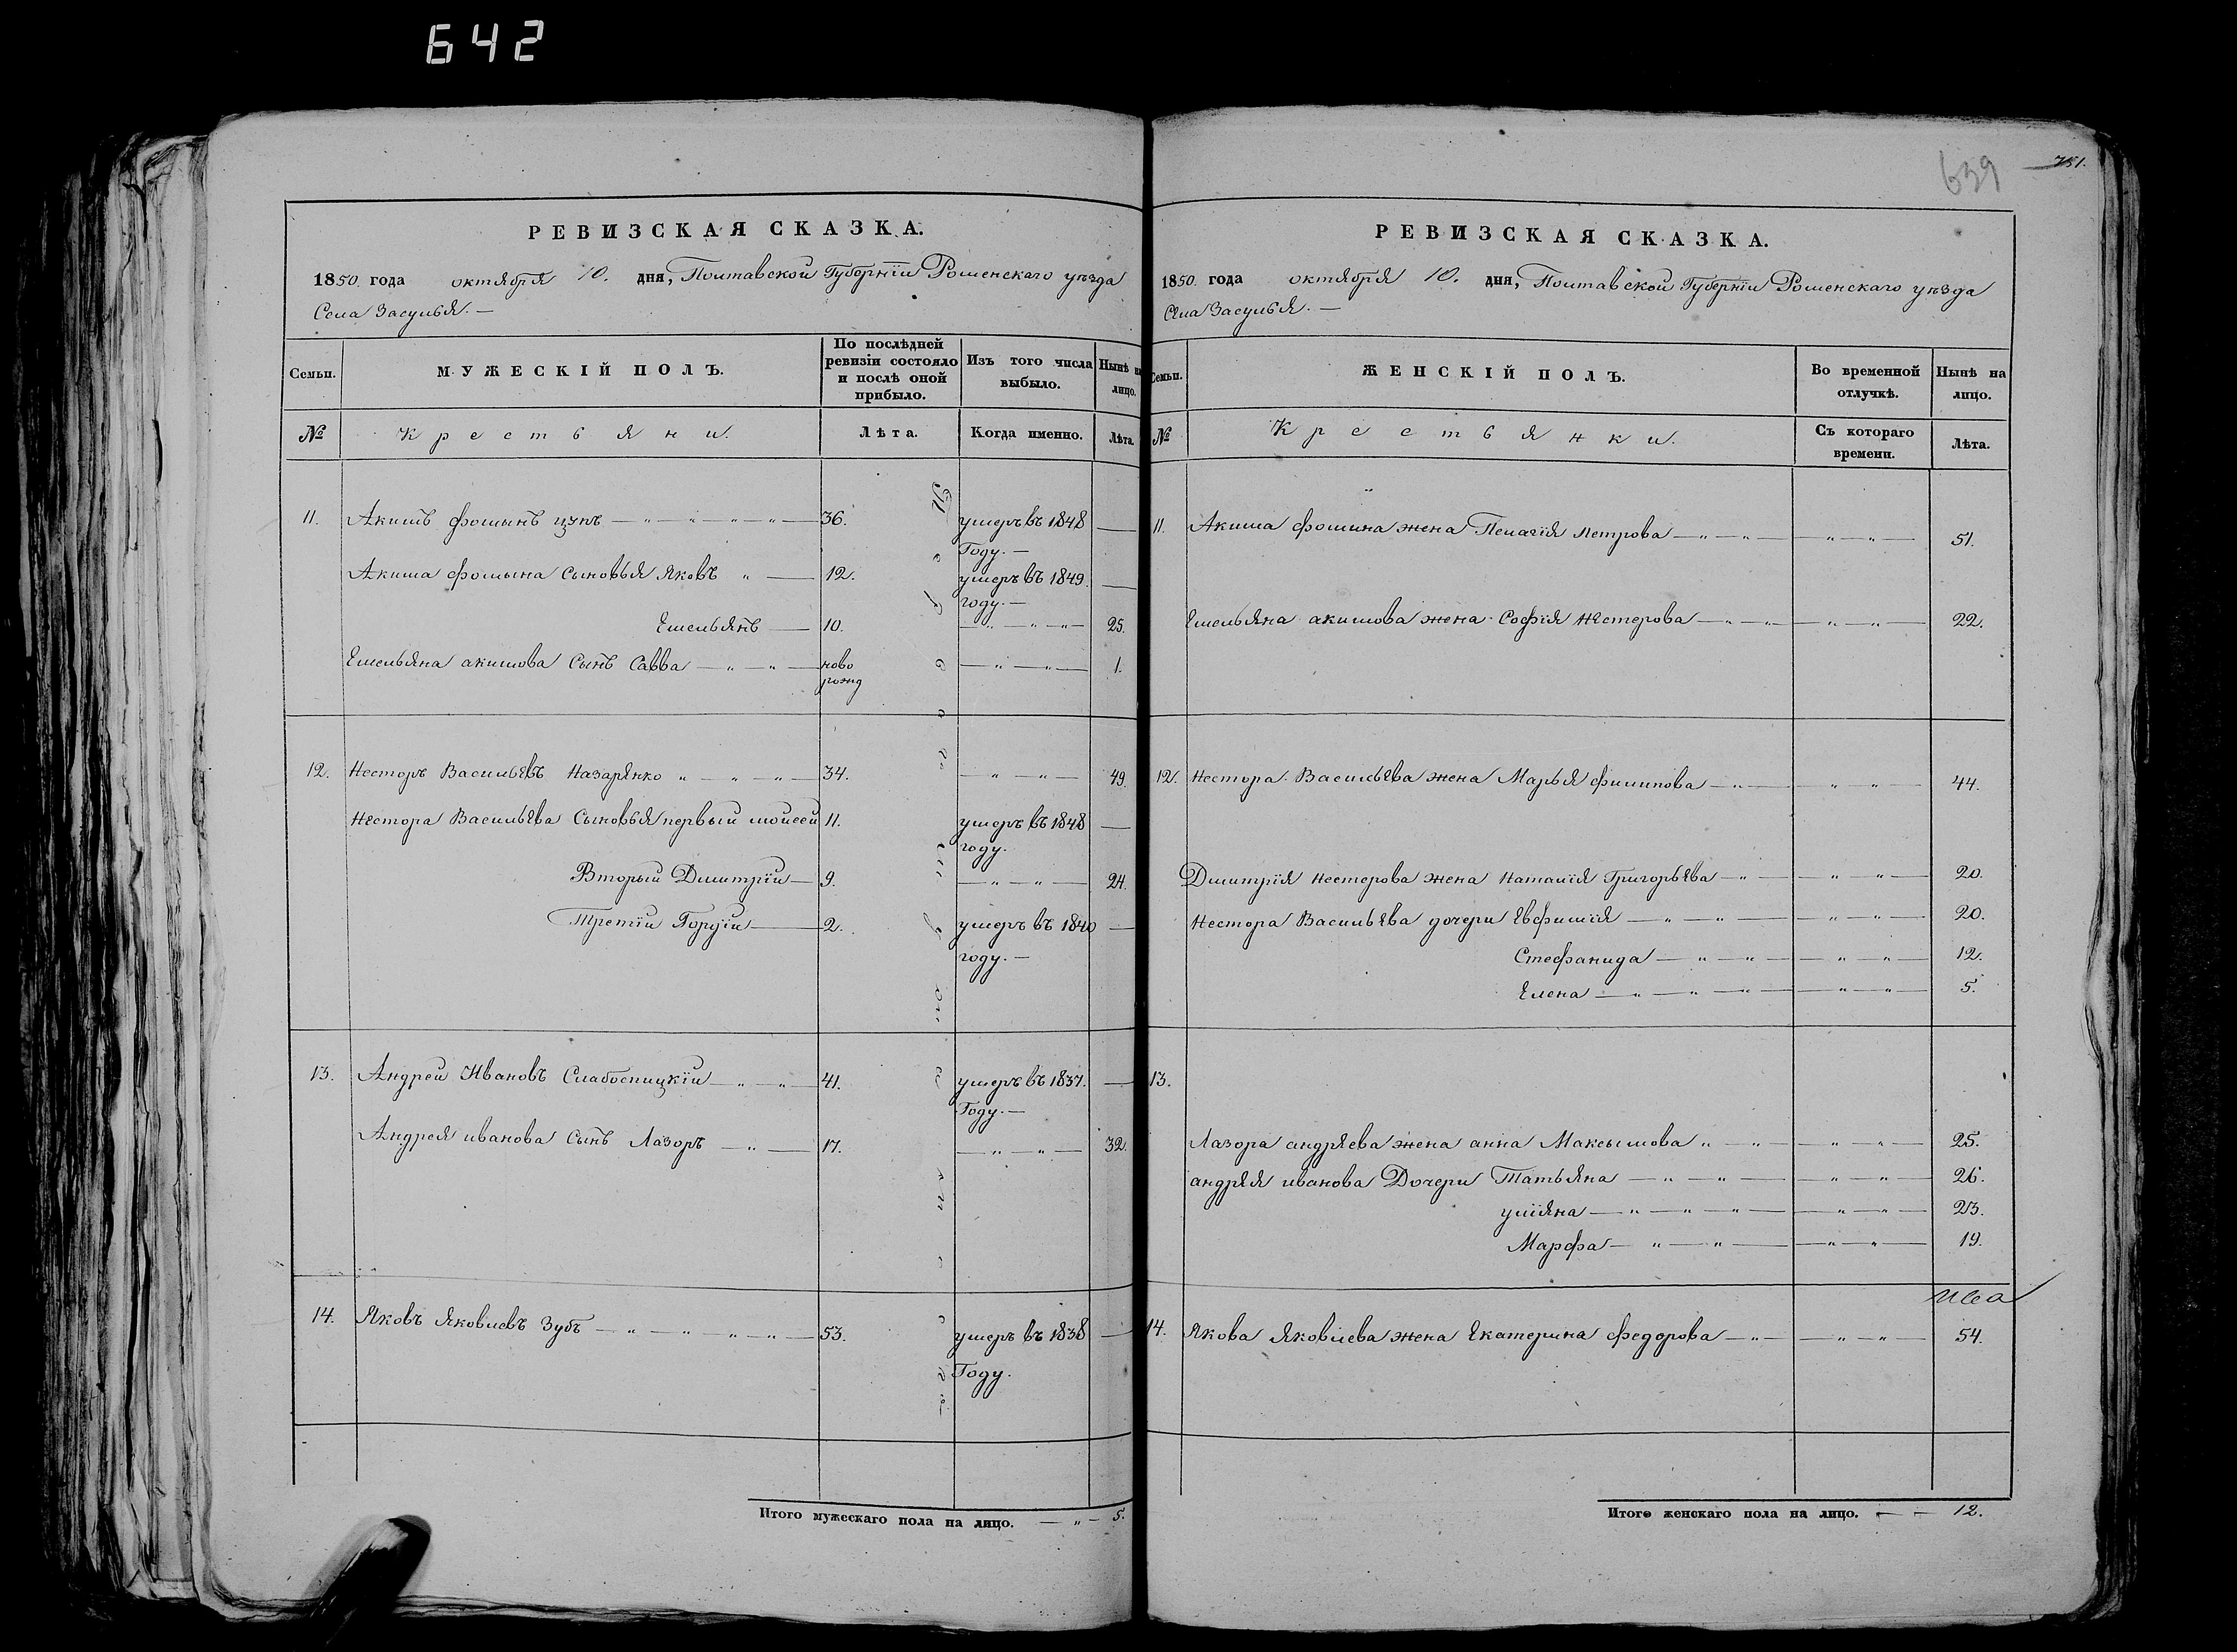 642
639
751.
РЕВИЗСКАЯ СКАЗКА.
1850. года октября 10. дня, Полтавской Губернїи Роменскаго уѣзда
Села Засулья. —
Семьи. МУЖЕСКІЙ ПОЛЪ. По послѣдней ревизіи состояло и послѣ оной прибыло. Изъ того числа выбыло. Нынѣ на лицо.
№ Крестьяни. Лѣта. Когда именно. Лѣта.
11. Акимъ фоминъ цупъ — 36. умеръ въ 1848 —
Году. —
Акима фомына Сыновья Яковъ — 12. умеръ въ 1849. —
году. —
Емельянъ — 10. — 25.
Емельяна акимова Сынъ Савва — ново — 1.
рожд
12. Несторъ Васильевъ Назаренко — 34. — 49.
Нестора Васильева Сыновья первый моисей 11. умеръ въ 1848 —
году.
Вторый Димитрїй — 9. — 24.
Третїй Гордїй — 2. умеръ въ 1840 —
году. —
13. Андрей Ивановъ Слабоспицкїй — 41. умеръ въ 1837. —
Году. —
Андрея иванова Сынъ Лазоръ — 17. — 32.
14. Яковъ Яковлевъ Зубъ — 53. умеръ въ 1838 —
Году.
Итого мужескаго пола на лицо. — 5.
РЕВИЗСКАЯ СКАЗКА.
1850. года октября 10. дня, Полтавской Губернїи Роменскаго уѣзда
Села Засулья. —
Семьи. ЖЕНСКІЙ ПОЛЪ. Во временной отлучкѣ. Нынѣ на лицо.
№ Крестьянки. Съ котораго времени. Лѣта.
11. Акима фомина жена Пелагїя петрова — 51.
Емельяна акимова жена Софїя Нестерова — 22.
12. Нестора Васильева жена Марья филипова — 44.
Димитрїя нестерова жена Наталїя Григорьева — 20.
Нестора Васильева дочери Евфимїя — 20.
Стефанида — 12.
Елена — 5.
13.
Лазора андреева жена анна Максымова — 25.
андрея иванова Дочери Татьяна — 26.
улїяна — 23.
Марфа — 19.
14. Якова Яковлева жена Екатерина федорова — 54.
Итого женскаго пола на лицо. — 12.